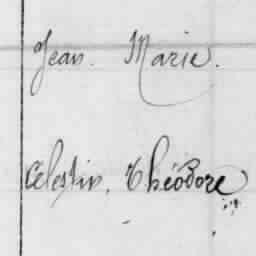 Jean. Marie.
Célestin, Théodore